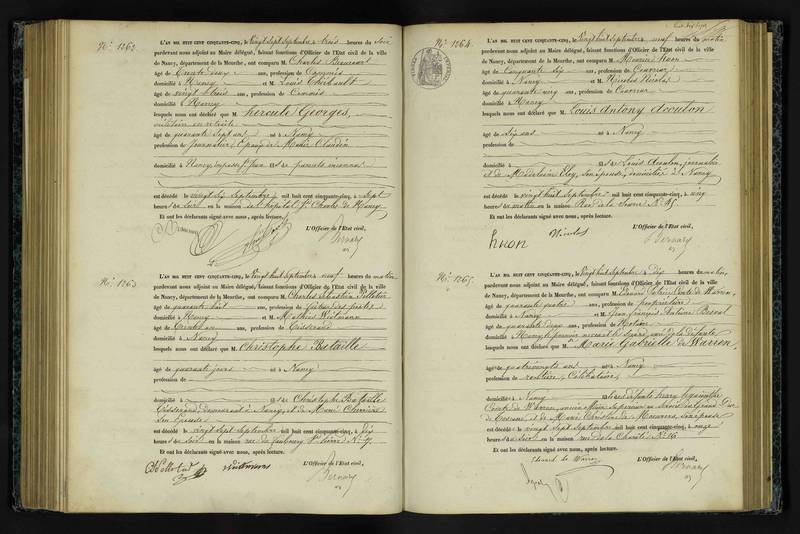 N.o 1262.
L'AN MIL HUIT CENT CINQUANTE-CINQ, le Vingt Sept Septembre à trois heures du Soir
pardevant nous adjoint au Maire délégué, faisant fonctions d'Officier de l'Etat civil de la ville
de Nancy, département de la Meurthe, ont comparu M. Charles
âgé de Trente deux ans, profession de Commis
domicilié à Nancy et M. Louis
âgé de Vingt trois ans, profession de Commis
domicilié à Nancy
lesquels nous ont déclaré que M. hercule Georges,
militaire en retraite
âgé de quarante Sept ans né à Nancy
profession de journalier, époux de Marie Claudin
domicilié à Nancy, impasse St Jean fils de parents inconnus
est décédé le vingt Six Septembre mil huit cent cinquante-cinq, à Sept
heures du Soir en la maison de l'hôpital St Charles de Nancy
Et ont les déclarants signé avec nous, après lecture.
L'Officier de l'Etat civil,
Bernard
N.o 1263
L'AN MIL HUIT CENT CINQUANTE-CINQ, le Vingt huit Septembre à neuf heures du matin
pardevant nous adjoint au Maire délégué, faisant fonctions d'Officier de l'Etat civil de la ville
de Nancy, département de la Meurthe, ont comparu M. Charles Sébastien Pelletier
âgé de quarante huit ans, profession de facteur des postes
domicilié à Nancy et M. Mathias
âgé de Trente un ans, profession de Tisserand
domicilié à Nancy
lesquels nous ont déclaré que M. Christophe Bataille
âgé de quarante jours né à Nancy
profession de
domicilié à fils de Christophe Bataille
tisserand, demeurant à Nancy, et de Marie
Son épouse
est décédé le vingt Sept Septembre mil huit cent cinquante-cinq, à Dix
heures du Soir en la maison rue du faubourg St Pierre No 97
Et ont les déclarants signé avec nous, après lecture.
L'Officier de l'Etat civil,
Bernard
N.o 1264.
L'AN MIL HUIT CENT CINQUANTE-CINQ, le Vingt huit Septembre à neuf heures du matin
pardevant nous adjoint au Maire délégué, faisant fonctions d'Officier de l'Etat civil de la ville
de Nancy, département de la Meurthe, ont comparu M. Maurice Huon
âgé de Cinquante Six ans, profession de
domicilié à Nancy et M. Nicolas Nicolas
âgé de quarante cinq ans, profession de
domicilié à Nancy
lesquels nous ont déclaré que M. Louis Antony Acouton
âgé de Six ans né à Nancy
profession de
domicilié à fils de Louis Acouton, journalier
et de Madeleine Eloy, Son épouse, domiciliés à Nancy
est décédé le vingt huit Septembre mil huit cent cinquante-cinq, à cinq
heures du matin en la maison Rue No 45
Et ont les déclarants signé avec nous, après lecture.
L'Officier de l'Etat civil,
huon Nicolas Bernard
N.o 1265.
L'AN MIL HUIT CENT CINQUANTE-CINQ, le Vingt huit Septembre à Dix heures du matin,
pardevant nous adjoint au Maire délégué, faisant fonctions d'Officier de l'Etat civil de la ville
de Nancy, département de la Meurthe, ont comparu M. Edouard Gabriel Comte de Warren,
âgé de quarante quatre ans, profession de propriétaire
domicilié à Nancy et M. Jean François Antoine
âgé de quarante deux ans, profession de Notaire
domicilié à Nancy, le premier neveu et le second ami de la défunte
lesquels nous ont déclaré que M. Marie Gabrielle de Warren,
âgé de quatre vingts ans né à Nancy
profession de rentière, Célibataire
domicilié à Nancy fille de défunts
Comte de Warren,
et de Marie Christine de son épouse
est décédé le vingt Sept Septembre mil huit cent cinquante-cinq, à onze
heures du Soir en la maison rue de la Charité No 16
Et ont les déclarants signé avec nous, après lecture.
Edouard de Warren
L'Officier de l'Etat civil,
Bernard